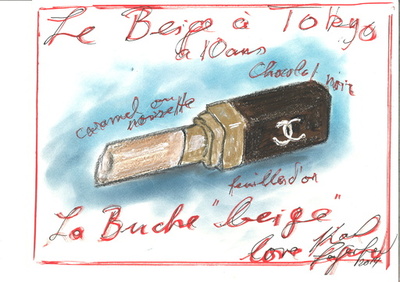 Le Beige à Tokyo
a 10 ans
Chocolat noir
caramel ou
noisette
feuille d'or
La Buche "beige"
love Karl
2014